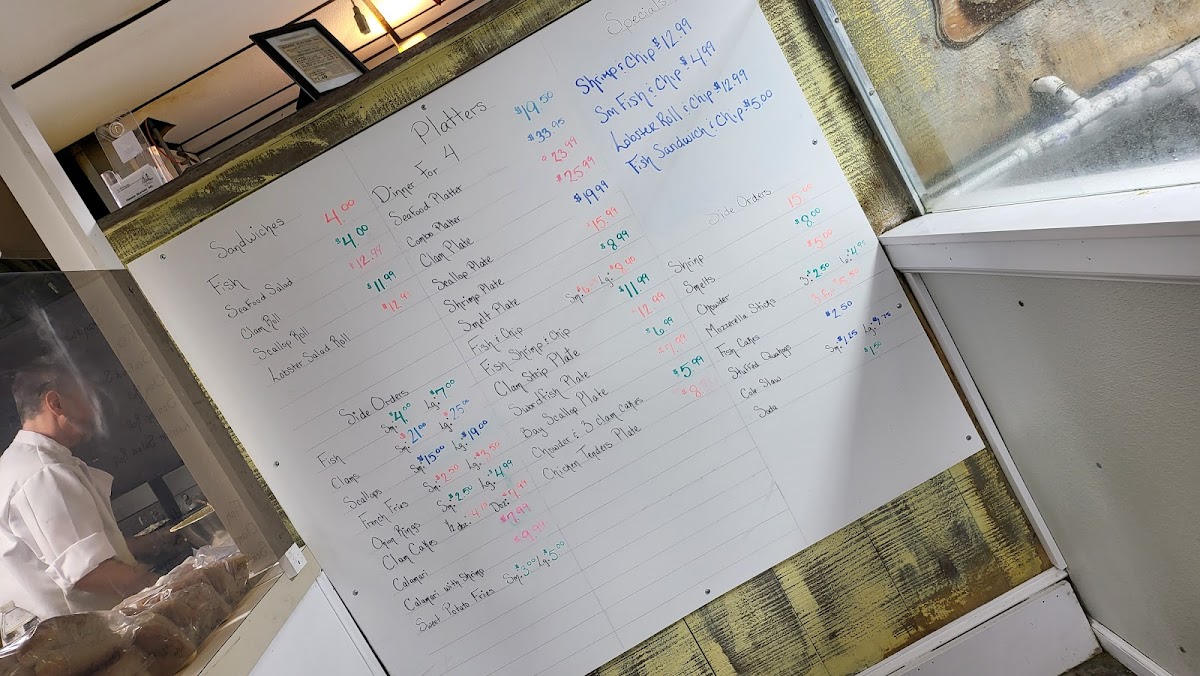 Sandwiches
Fish 4.00
Seafood Salad $4.00
Clam Roll $12.99
Scallop Roll $11.99
Lobster Salad Roll
Side Orders
Fish Sm: $4.00 Lg: $7.00
Clams Sm: $21.00 Lg: $25.00
Scallops Sm: $15.00 Lg: $19.00
French Fries Sm: $2.50 Lg: $3.50
Onion Rings Sm: $2.50 Lg: $4.99
Clam Cakes 1/2 doz: Doz:
Calamari $7.99
Calamari with Shrimp $9.99
Sweet Potato Fries Sm: $3.00 Lg: $5.00
Platters
Dinner For 4 $19.50
Seafood Platter $33.95
Combo Platter $23.99
Clam Plate $25.99
Scallop Plate $19.99
Shrimp Plate $15.99
Smelt Plate $8.99
Fish & Chip Sm: Lg:
Fish Shrimp & Chip $11.99
Clam Strip Plate $12.99
Swordfish Plate $6.99
Bay Scallop Plate $9.99
Chowder & 3 clam cakes $5.99
Chicken Tenders Plate
Specials
Shrimp & Chip $12.99
Sm Fish & Chip $4.99
Lobster Roll & Chip $12.99
Fish Sandwich & Chip $5.00
Side Orders
Shrimp
Smelts $8.00
Chowder $5.00
Mozzarella Sticks 3: $2.50 6: $4.95
Fish Cakes 6: $5.50
Stuffed Quahogs $2.50
Cole Slaw Sm: $1.25 Lg: $3.75
Soda $1.50